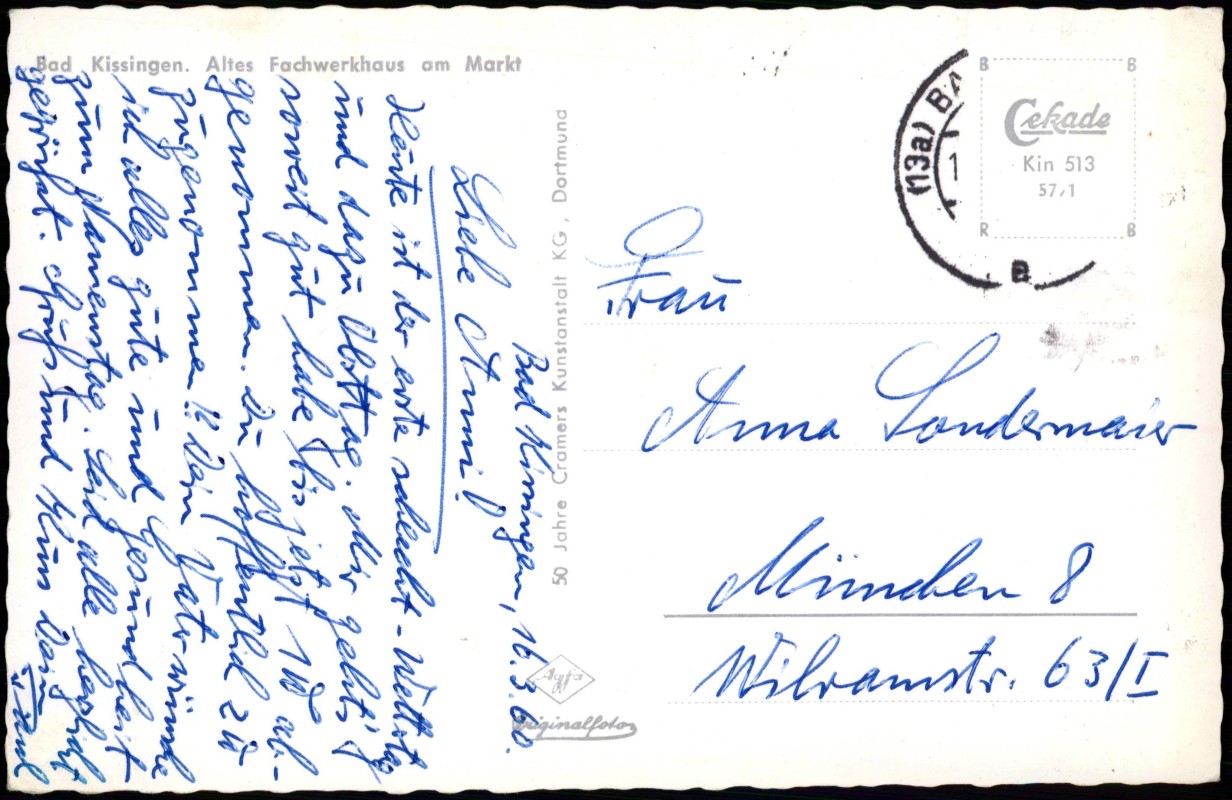 Bad Kissingen. Altes Fachwerkhaus am Markt
Bad Kissingen, 16.3.60.
Liebe Anni!
Heute ist der erste schlecht-Wettertag
und dazu Obsttag. Mir geht's
soweit gut habe bis jetzt 10 ℔ ab-
genommen. Du hoffentlich 2 ℔
zugenommen!! Dein Vater wünscht
dir alles gute und Gesundheit
zum Namenstag. Seid alle herzlichst
gegrüßt. Gruß und Kuss Dein
50 Jahre Cramers Kunstanstalt KG, Dortmund
Agfa
Originalfoto
(13a) BA
1
a
B B
Cekade
Kin 513
57/1
R B
Frau
Anna Sondermaier
München 8
Wilramstr. 63/I